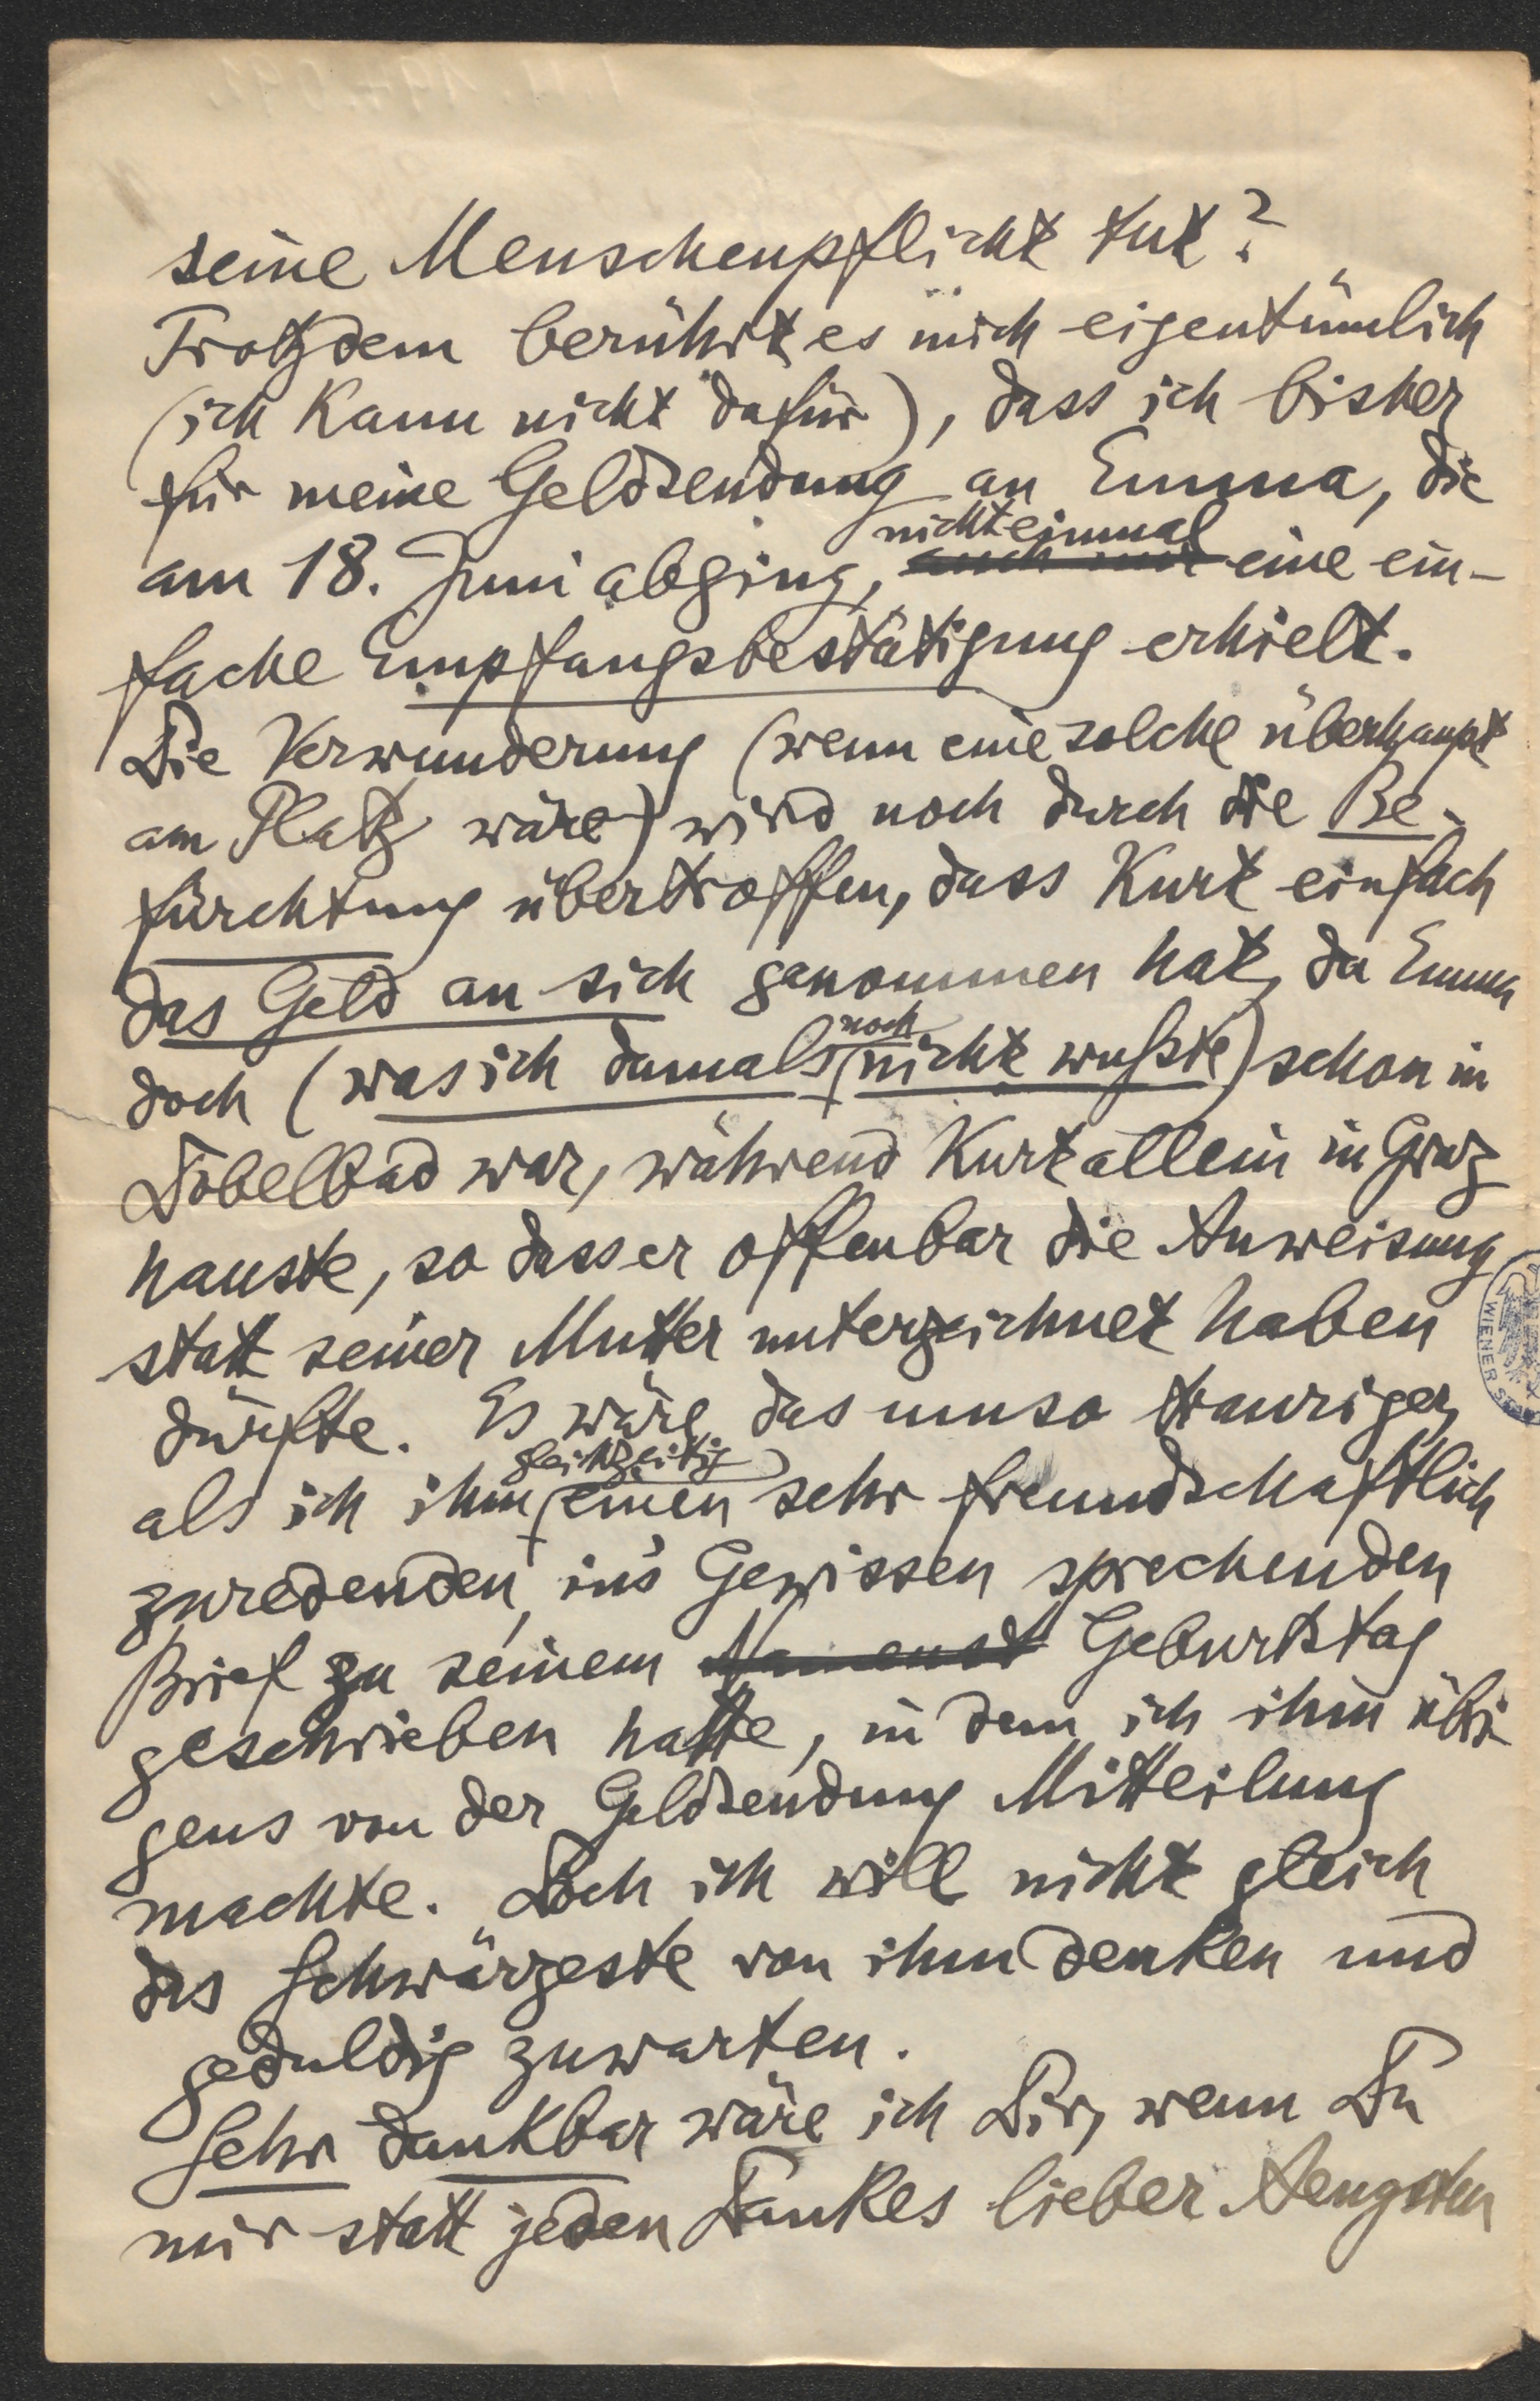 seine Menschenpflicht tut?
Trotzdem berührt es mich eigentümlich
(ich kann nicht dafür), dass ich bisher
für meine Geldsendung an Emma, die
nicht einmal
am 18. Juni abging, auch nur eine ein-
fache Empfangsbestätigung erhielt.
Die Verwunderung (wenn eine solche überhaupt
am Platz wäre) wird noch durch die Be-
fürchtung übertroffen, dass Kurt einfach
das Geld an sich genommen hat, da Emma
noch
doch (was ich damals nicht wußte) schon in
Tobelbad war, während Kurt allein in Graz
hauste, so dass er offenbar die Anweisung
statt seiner Mutter unterzeichnet haben
dürfte. Es wäre das umso trauriger,
gleichzeitig
als ich ihm einen sehr freundschaftlich
zuredenden, ins Gewissen sprechenden
Brief zu seinem Namenst Geburtstag
geschrieben hatte, in dem ich ihm übri-
gens von der Geldsendung Mitteilung
machte. Doch ich will nicht gleich
das Schwärzeste von ihm denken und
geduldig zuwarten.
Sehr dankbar wäre ich Dir, wenn Du
mir statt jeden Dankes lieber Aengsten
WIENER